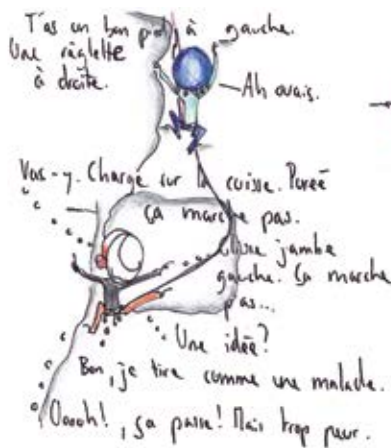 T'as un bon pied à gauche.
Une réglette
à droite.
Ah ouais.
Vas-y. Charge sur la cuisse. Pureé
ça marche pas.
jambe
gauche. Ça marche
pas...
Une idée?
Bon, je tire comme une malade.
Ooooh!, ça passe! Mais trop peur.